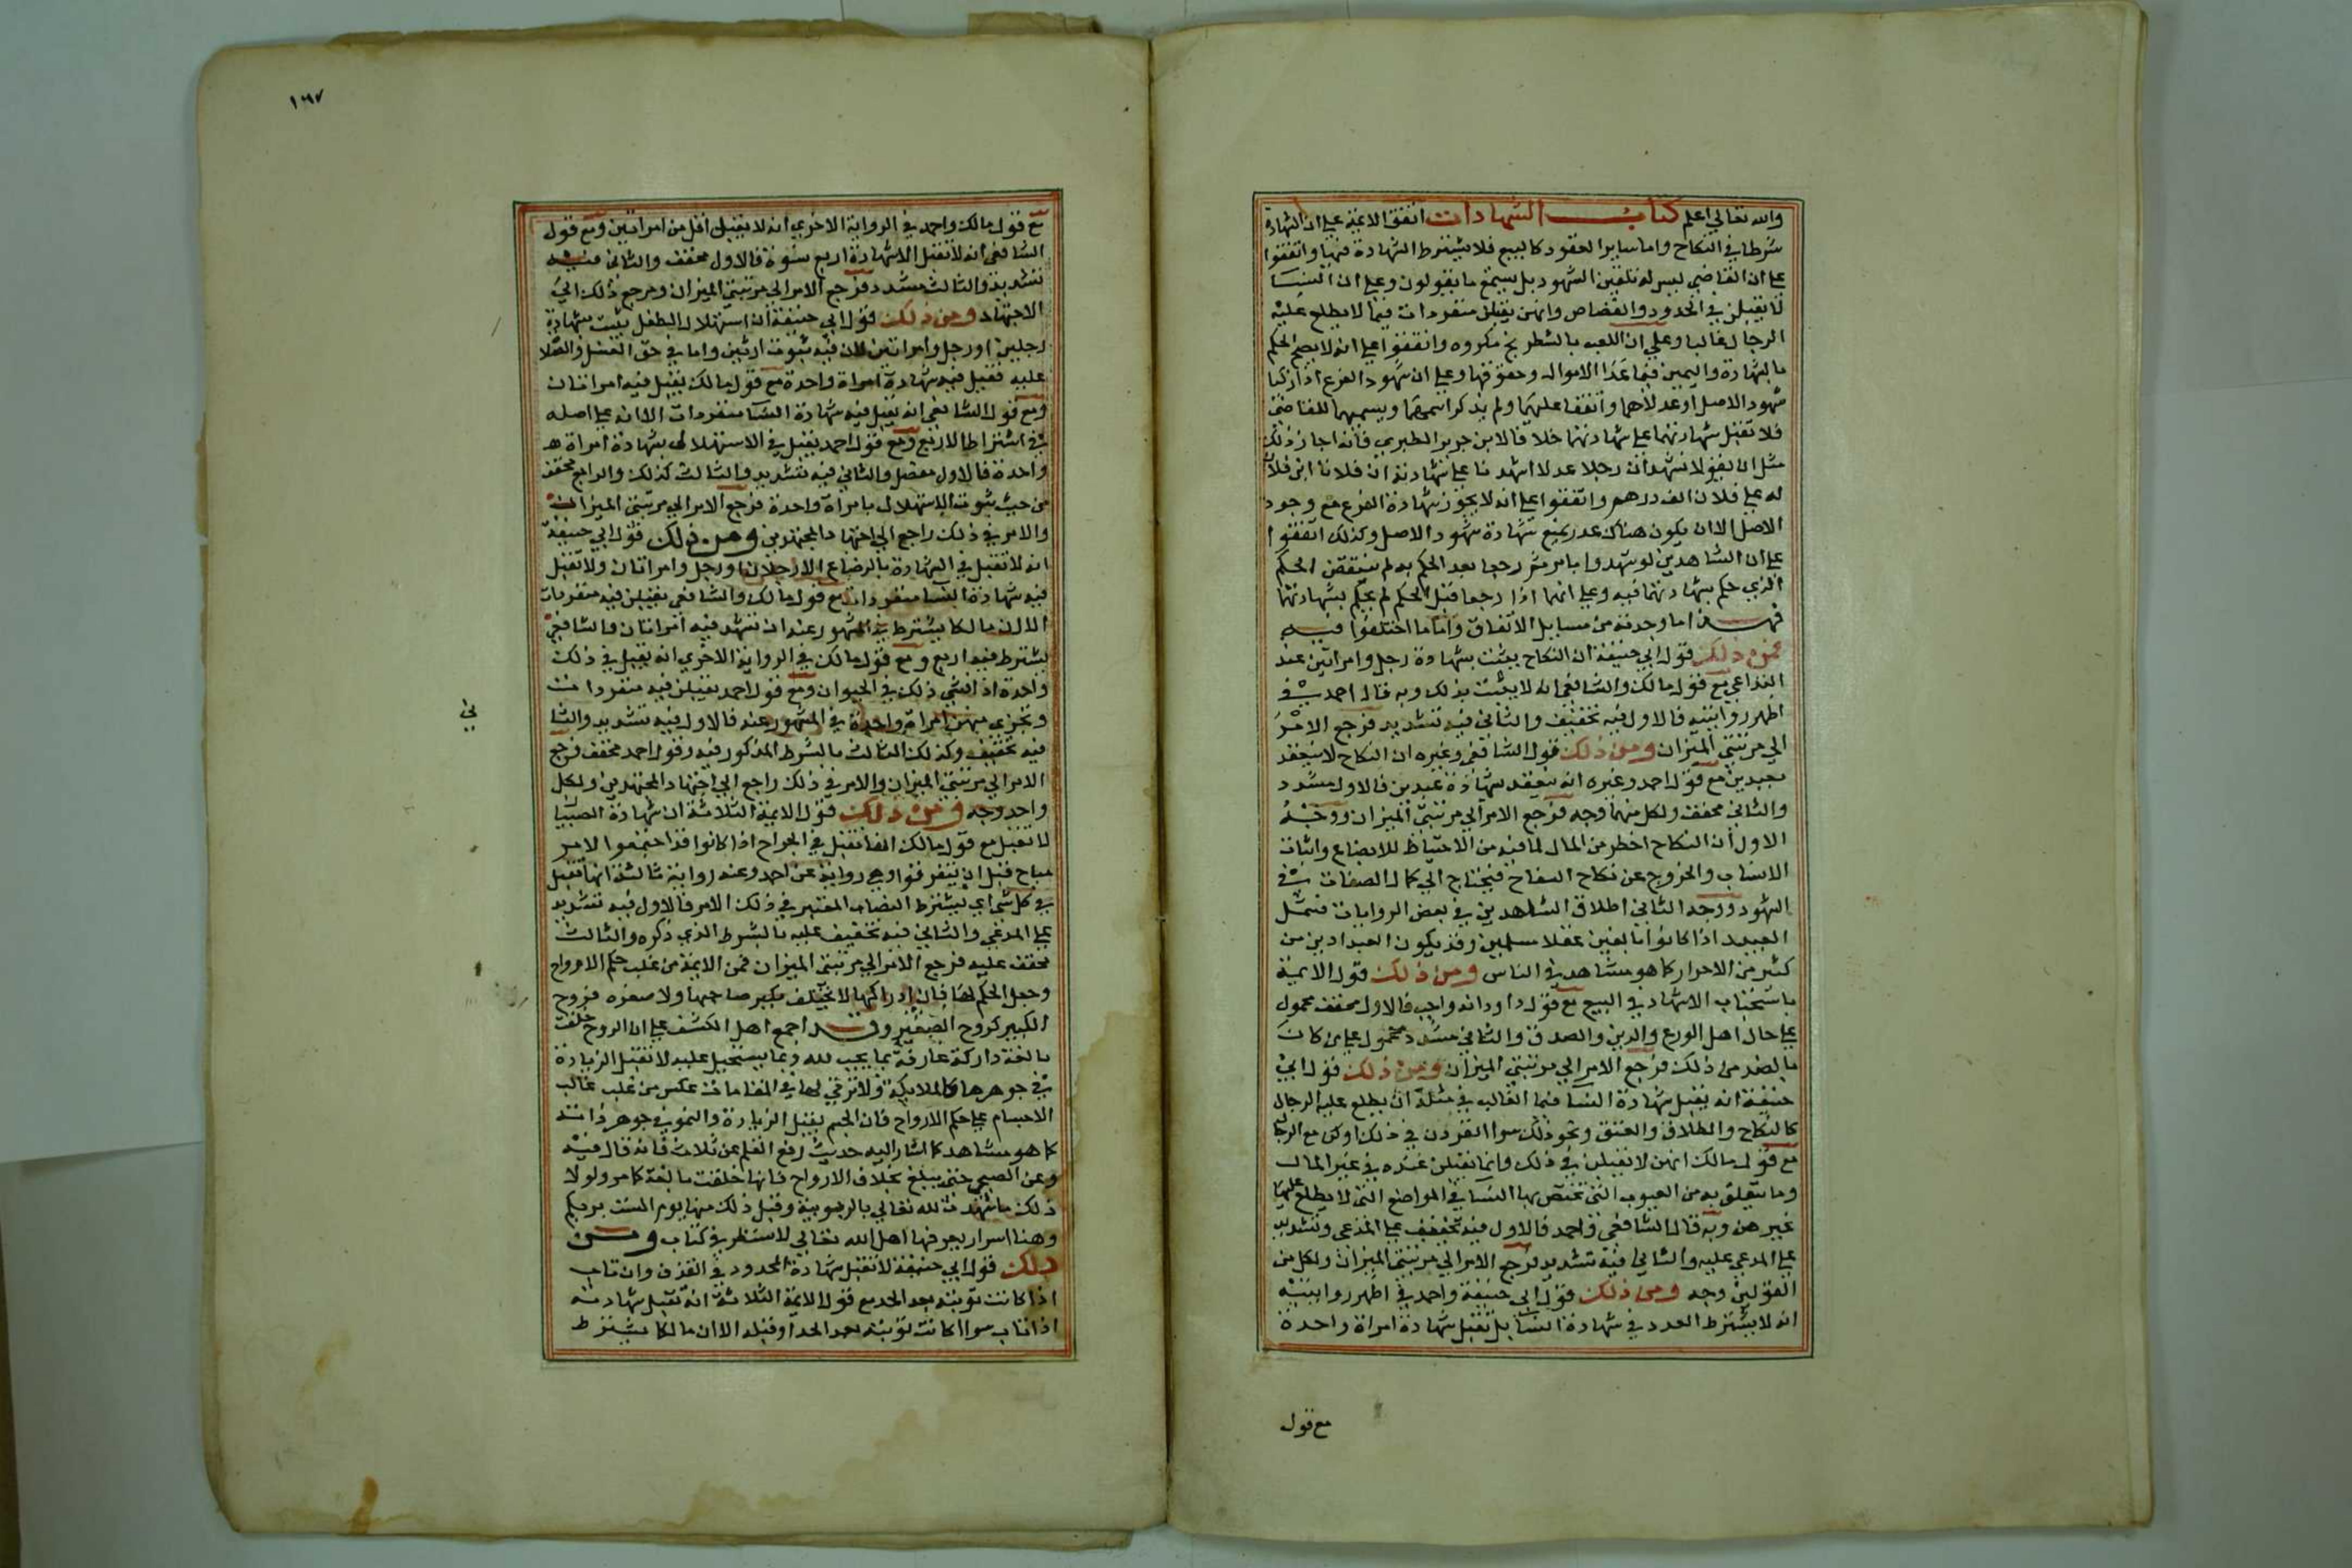 والله تعالي اعلم كتاب الشهادات اتفق الايمة علي ان الشهادة
شرط في النكاح واما ساير العقود كالبيع فلا يشترط الشهادة فيها واتفقوا
علي ان القاضي ليس له تلقين الشهود بل يسمع ما يقولون وعلي ان النسا
لا يقبلن في الحدود والقصاص وانهن يقبلن منفردات فيما لا يطلع عليه
الرجال غالبا وعلي ان اللعب بالشطرنج مكروه واتفقوا علي انه لا يصح الحكم
بالشهادة واليمين فيما عدا الاموال وحقوقها وعلي ان شهود الفرع اذا زكيا
شهود الاصل او عدلاهما واتفقا عليهما ولم يذكرا اسميهما ويسميهما للقاضي
فلا تقبل شهادتهما علي شهادتهما خلافا لابن جرير الطبري فانه اجاز ذلك
مثل ان يقولا نشهد ان رجلا عدلا اشهدنا علي شهادته ان فلانا ابن فلان
له علي فلان الف درهم واتفقوا علي انه لا يجوز شهادة الفرع مع وجود
الاصل الا ان يكون هناك عذر يمنع شهادة شهود الاصل وكذلك اتفقوا
علي ان الشاهدين لو شهدوا بامر ثم رجعا بعد الحكم به لم ينتقض الحكم
الذي حكم بشهادتهما فيه وعلي انهما اذا رجعا قبل الحكم لم يحكم بشهادتهما
فهذا ما وجدته من مسايل الاتفاق واما ما اختلفوا فيه
فمن ذلك قول ابي حنيفة ان النكاح يثبت بشهادة رجل وامراتين عند
التداعي مع قول مالك والشافعي انه لا يثبت بذلك وبه قال احمد في
اظهر روايتيه فالاول فيه تخفيف والثاني فيه تشديد فرجع الامر
الي مرتبتي الميزان ومن ذلك قول الشافعي وغيره ان النكاح لا ينعقد
بعبدين مع قول احمد وغيره انه ينعقد بشهادة عبدين فالاول مشدد
والثاني مخفف ولكل منهما وجه فرجع الامر الي مرتبتي الميزان ووجه
الاول ان النكاح اخطر من المال لما فيه من الاحتياط للابضاع واثبات
الانساب والخروج عن نكاح السفاح فيحتاج الي كمال الصفات في
الشهود ووجه الثاني اطلاق الشاهدين في بعض الروايات فشمل
العبيد اذا كانوا بالغين عقلا مسلمين وقد يكون العبد ادين من
كثير من الاحرار كما هو مشاهد في الناس ومن ذلك قول الايمة
باستحباب الاشهاد في البيع مع قول داود انه واجب فالاول مخفف محمول
علي حال اهل الورع والدين والصدق والثاني مشدد محمول علي من كان
بالضد من ذلك فرجع الامر الي مرتبتي الميزان ومن ذلك قول ابي
حنيفة انه يقبل شهادة النسا فيما الغالب في مثله ان يطلع عليه الرجال
كالنكاح والطلاق والعتق ونحو ذلك سوا انفردن في ذلك او كن مع الرجال
مع قول مالك انهن لا تقبلن في ذلك وانما تقبلن عنده في غير المال
وما يتعلق به من العيوب التي تختص بها النسا في المواضع التي لا يطلع عليها
غيرهن وبه قال الشافعي واحمد فالاول فيه تخفيف علي المدعي وتشديد
علي المدعي عليه والثاني فيه تشديد فرجع الامر الي مرتبتي الميزان ولكل من
القولين وجه ومن ذلك قول ابي حنيفة واحمد في اظهر روايتيه
انه لا يشترط العدد في شهادة النسا بل تقبل شهادة امراة واحدة
مع قول
١٦٧
مع قول مالك واحمد في الرواية الاخري انه لا يقبل اقل من امراتين ومع قول
الشافعي انه لا تقبل الا شهادة اربع نسوة فالاول مخفف والثاني فيه
تشديد والثالث مشدد فرجع الامر الي مرتبتي الميزان ومرجع ذلك الي
الاجتهاد ومن ذلك قول ابي حنيفة ان استهلال الطفل يثبت بشهادة
رجلين او رجل وامراتين لان فيه ثبوت ارثين واما في حق الغسل والصلاة
عليه فقبل فيه شهادة امراة واحدة مع قول مالك يقبل فيه امراتان
ومع قول الشافعي انه يقبل فيه شهادة النسا منفردات الا انه علي اصله
في اشتراط الاربع ومع قول احمد يقبل في الاستهلال بشهادة امراة
واحدة فالاول مفصل والثاني فيه تشديد والثالث كذلك والرابع مخفف
من حيث ثبوت الاستهلال بامراة واحدة فرجع الامر الي مرتبتي الميزان
والامر في ذلك راجع الي اجتهاد المجتهدين ومن ذلك قول ابي حنيفة
انه لا تقبل في الشهادة بالرضاع الا رجلان او رجل وامراتان ولا تقبل
فيه شهادة النسا منفردات مع قول مالك والشافعي يقبلن فيه منفردات
الا ان مالكا يشترط في المشهور عنه ان تشهد فيه امراتان والشافعي
يشترط فيه اربع ومع قول مالك في الرواية الاخري انه يقبل في ذلك
واحدة اذا فشي ذلك في الجيران ومع قول احمد يقبلن فيه منفردات
وتجزي منهن امراة واحدة في المشهور عنه فالاول فيه تشديد والثا
ني
فيه تخفيف وكذلك الثالث بالشرط المذكور فيه وقول احمد مخفف فرجع
الامر الي مرتبتي الميزان والامر في ذلك راجع الي اجتهاد المجتهدين ولكل
واحد وجه ومن ذلك قول الايمة الثلاثة ان شهادة الصبيان
لا تقبل مع قول مالك انها تقبل في الجراح اذا كانوا قد اجتمعوا لامر
مباح قبل ان يتفرقوا وهي رواية عن احمد وعنه رواية ثالثة انها تقبل
في كل شي اي بشرط النصاب المعتبر في ذلك الامر فالاول فيه تشديد
علي المدعي والثاني فيه تخفيف عليه بالشرط الذي ذكره والثالث
مخفف عليه فرجع الامر الي مرتبتي الميزان فمن الايمة من غلب حكم الارواح
وجعل الحكم لها فان ادراكها لا يختلف بكبر صاحبها ولا صغره فروح
الكبير كروح الصغير وقد اجمع اهل الكشف علي ان الروح خلقت
بالغة داركة عارفة بما يجب لله وبما يستحيل عليه لا تقبل الزيادة
في جوهرها كالملايكة ولا ترقي لها في المقامات عكس من غلب غالب
الاجسام علي حكم الارواح فان الجسم يقبل الزيادة والنمو في جوهر ذاته
كما هو مشاهد كما اشار اليه حديث رفع القلم عن ثلاث فانه قال فيه
وعن الصبي حتي يبلغ بخلاف الارواح فانها خلقت بالغة كما مر ولولا
ذلك ما شهدت لله تعالي بالربوبية وقبل ذلك منها يوم الست بربكم
وهنا اسرار يعرفها اهل الله تعالي لا تسطر في كتاب ومن
ذلك قول ابي حنيفة لا تقبل شهادة المحدود في القذف وان تاب
اذا كانت توبته بعد الحد مع قول الايمة الثلاثة انه تقبل شهادته
اذا تاب سوا كانت توبته بعد الحد او قبله الا ان مالكا يشترط